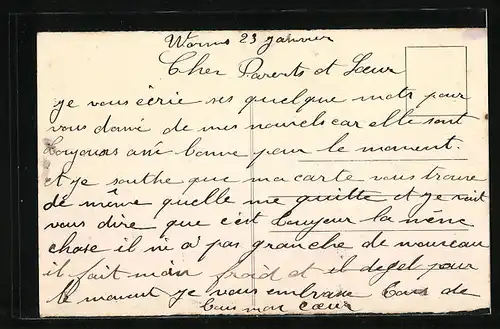 Worms 23 janvier
Cher Parents et Sœur
je vous écrie ses quelque mots pour
vous donné de mes nouvels car elle sont
toujours assé bonne pour le moment.
et je southe que ma carte vous trouve
de même quelle me quitte et je voit
vous dire que c'est toujour la même
chose il ni a pas granche de nouveau
il fait moin froid et il degel pour
le moment je vous embrasse tous de
tous mon cœur